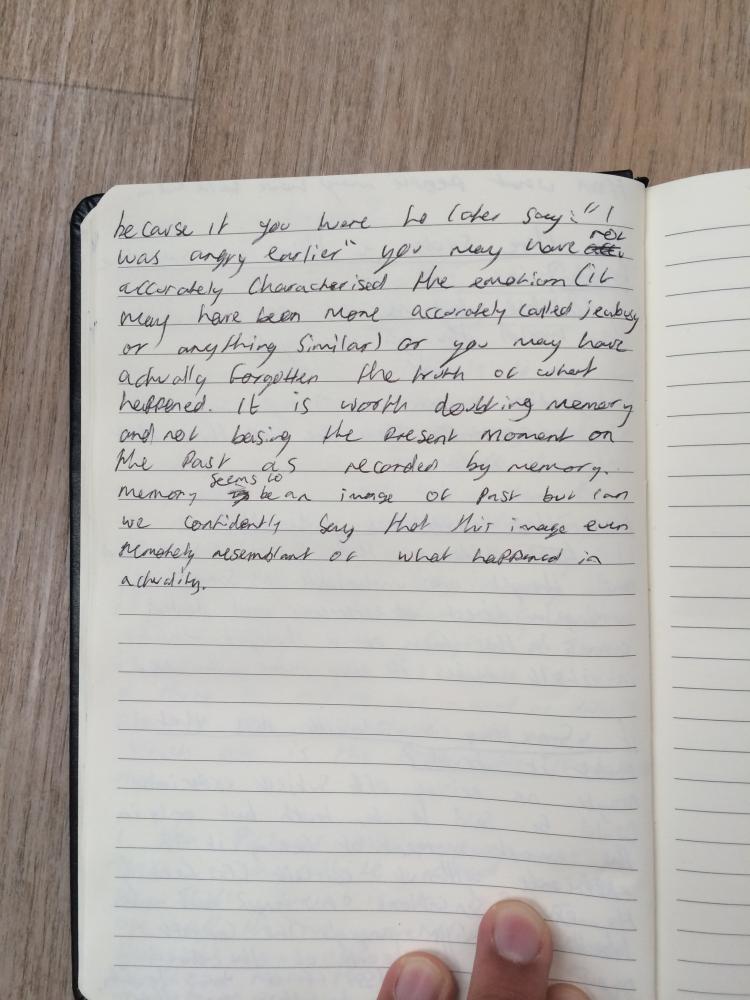 because if you were to later say: "I
was angry earlier" you may have not
accurately characterised the emotion (it
may have been more accurately called jealousy
or anything similar) or you may have
actually forgotten the truth of what
happened. It is worth doubting memory
and not basing the present moment on
the past as recorded by memory.
memory seems to be an image of past but can
we confidently say that this image even
remotely resemblant of what happened in
actuality.